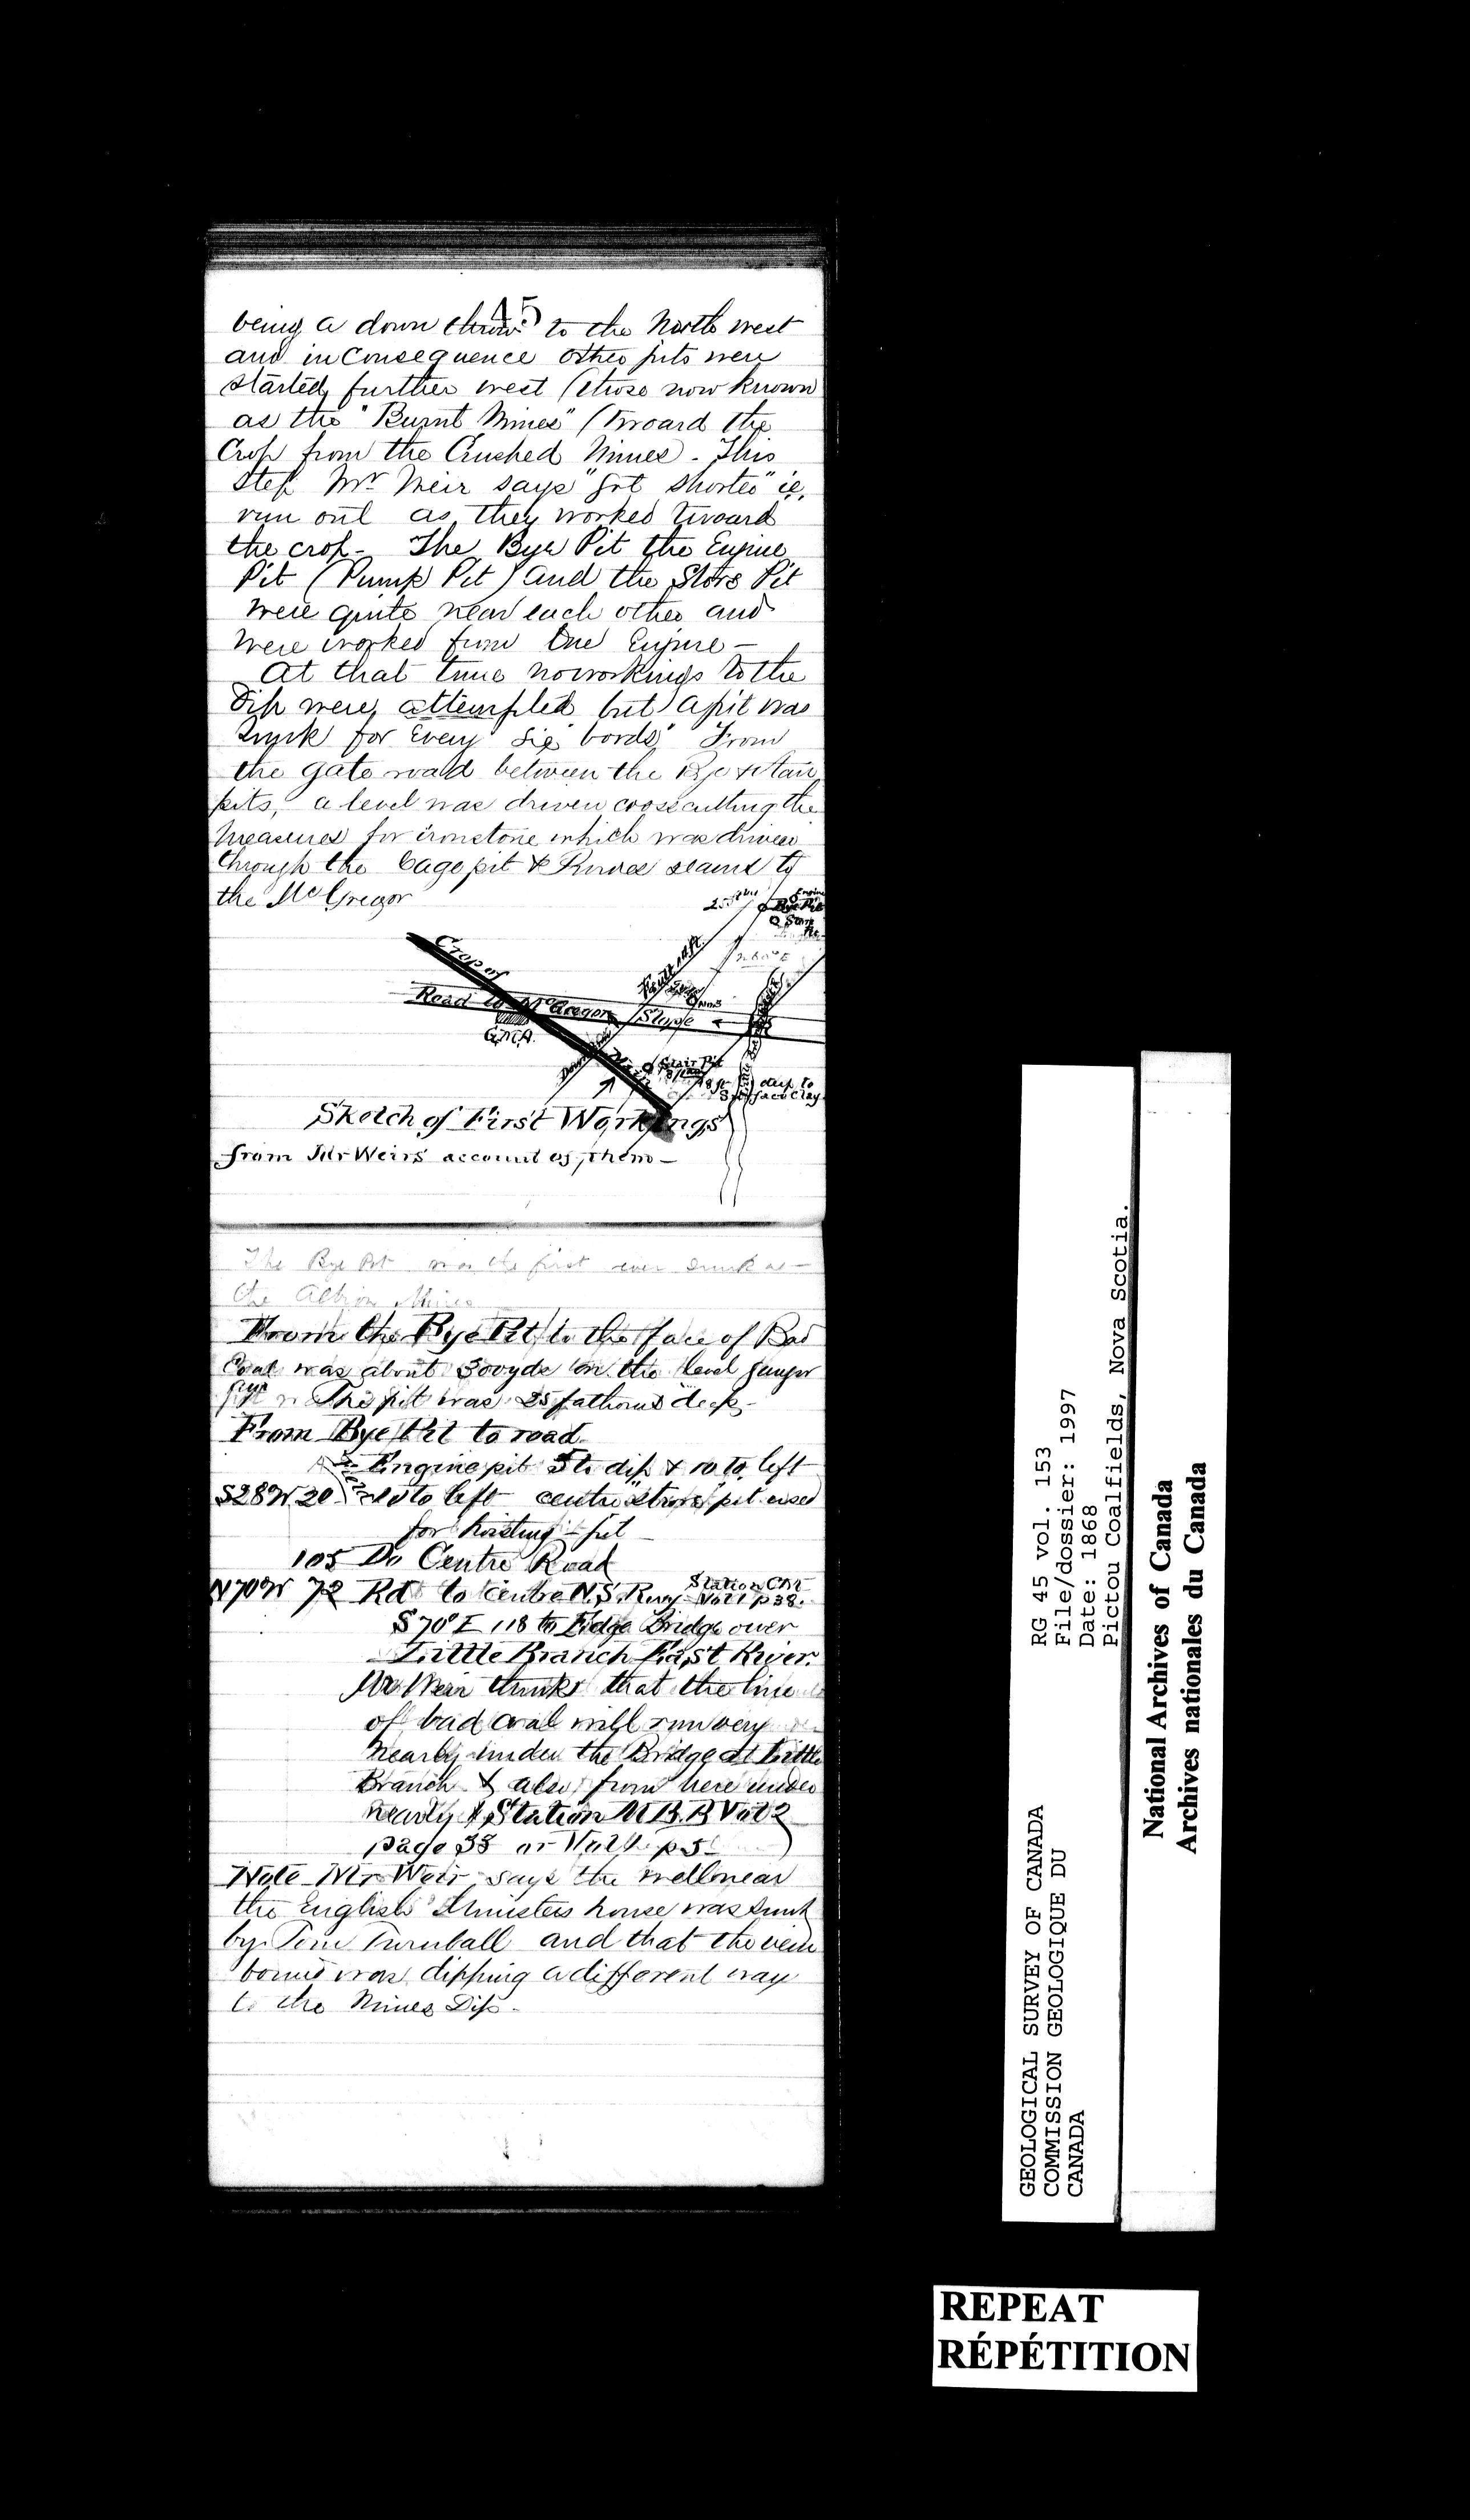 45
being a down throw to the North west
and in consequence other pits were
started further west (those now known
as the "Burnt Mines" (toward the
Crop from the Crushed Mines. This
step Mr Weir says "got shorter" ie,
run out as they worked toward
the crop - The Bye Pit the Engine
Pit (Pump Pit) and the Store Pit
were quite near each other and
were worked from One Engine -
At that time no workings to the
Dip were attempted but a pit was
sunk for Every six "bords" From
the gate road between the Bye & Stair
pits, a level was driven cross cutting the
measures for ironstone which was driven
through the Cage pit & seams to
the McGregor
Engine
Bye Pit
Crop of
Road to McGregor Slope
G.M.A.
Stair Pit
dip to
Surface Clay
Sketch of First Workings
from Mr Weirs account of them -
The Bye Pit was the first ever sunk at
the Albion Mines
From the Bye Pit to the face of Bad
Coal was about 300 yds on the level
The pit was 25 fathoms deep -
From Bye Pit to road
Engine pit 5 to dip & 10 to left
S28W 20 to left centre "store" pit used
for hoisting - pit
105 Do Centre Road
N70W 72 Rd to Centre N.S. Rwy Station
Vol 1 p 38.
S70°E 118 to Edge Bridge over
Little Branch East River.
Mr Weir thinks that the line
of bad coal will run very
nearly under the Bridge at Little
Branch & also from here under
nearly Station M B.B Vol 2
page 38 or Vol p 5
Note Mr Weir says the well near
the English Ministers house was sunk
by Tom Turnball and that the vein
found was dipping a different way
to the Mines Dip -
GEOLOGICAL SURVEY OF CANADA
COMMISSION GEOLOGIQUE DU
CANADA
RG 45 vol. 153
File/dossier: 1997
Date: 1868
Pictou Coalfields, Nova Scotia.
National Archives of Canada
Archives nationales du Canada
REPEAT
RÉPÉTITION